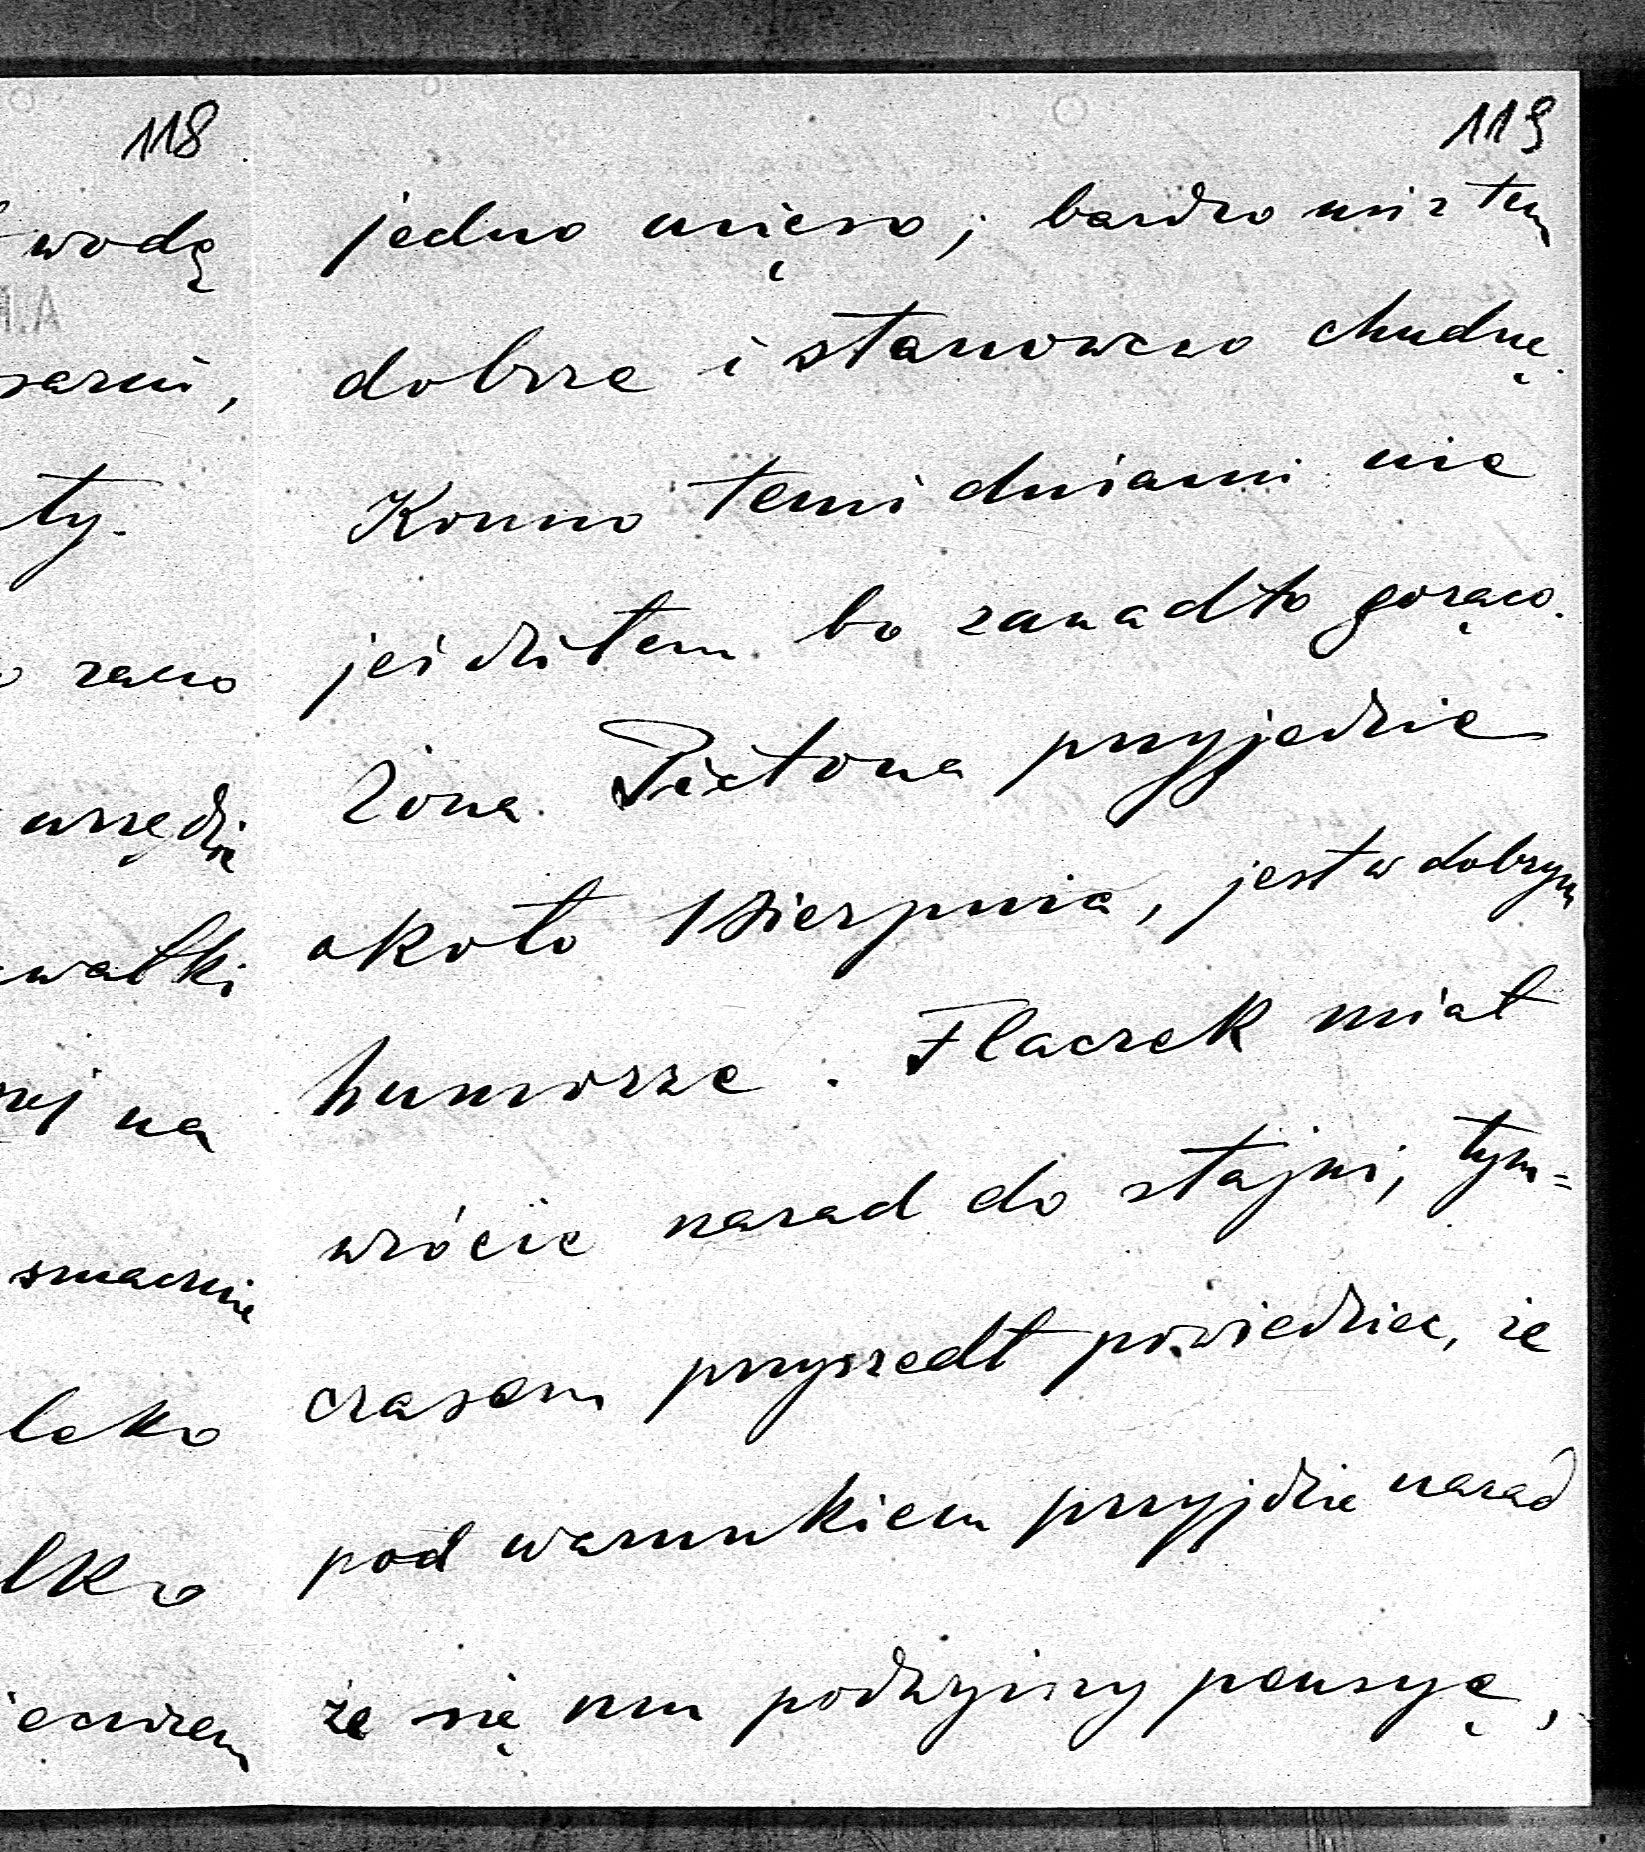 118
wodę
sarni,
ty.
rano
wszędzie
wałki
na
smacznie
leko
lko
119
jedno mięso; bardzo mi z tem
dobrze i stanowczo chudnę.
Konno temi dniami nie
jeździłem bo zanadto gorąco.
Żona Pietona przyjedzie
około 1 Sierpnia, jest w dobrym
humorze. Flaczek miał
wrócić nazad do stajni, tym=
czasem przyszedł powiedzieć, że
pod warunkiem przyjdzie nazad
że się mu podwyższy pensyę,